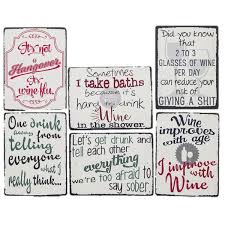 It's not
a
Hangover
it's
wine flu.
Sometimes
I take baths
because it's
hard to drink
Wine
in the shower.
Did you know
that
2 TO 3
GLASSES OF WINE
PER DAY
can reduce your
risk of
GIVING A SHIT
One drink
away from
telling
everyone
what I
really think...
Let's get drunk and
tell each other
everything
we're too afraid to
say sober.
Wine
improves
with age
I improve
with
Wine